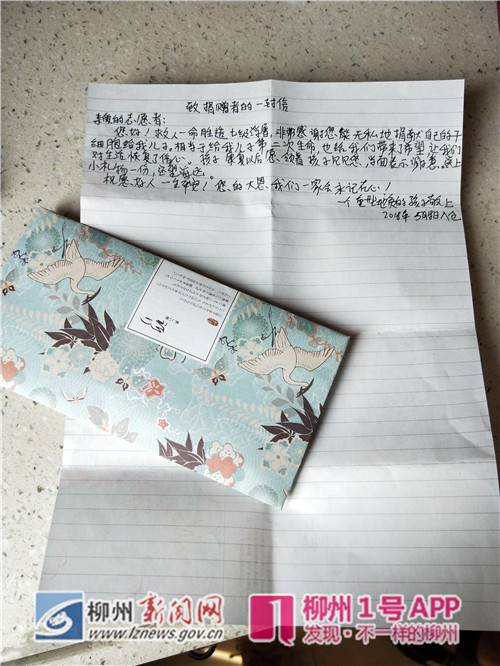 致捐赠者的一封信
尊敬的志愿者：
您好！救人一命胜造七级浮屠，非常感谢您能无私地捐献自己的干
细胞给我儿子。相当于给我儿子第二次生命，也给我们带来了希望让我们
对生活恢复了信心。孩子康复以后愿领着孩子见见您，当面表示谢意。送上
小礼物一份，还望海涵。
祝愿好人一生平安！您的大恩，我们一家会永记在心！
一个重型地贫的孩子敬上
柳州新闻网
www.lznews.gov.cn
柳州1号APP
发现·不一样的柳州